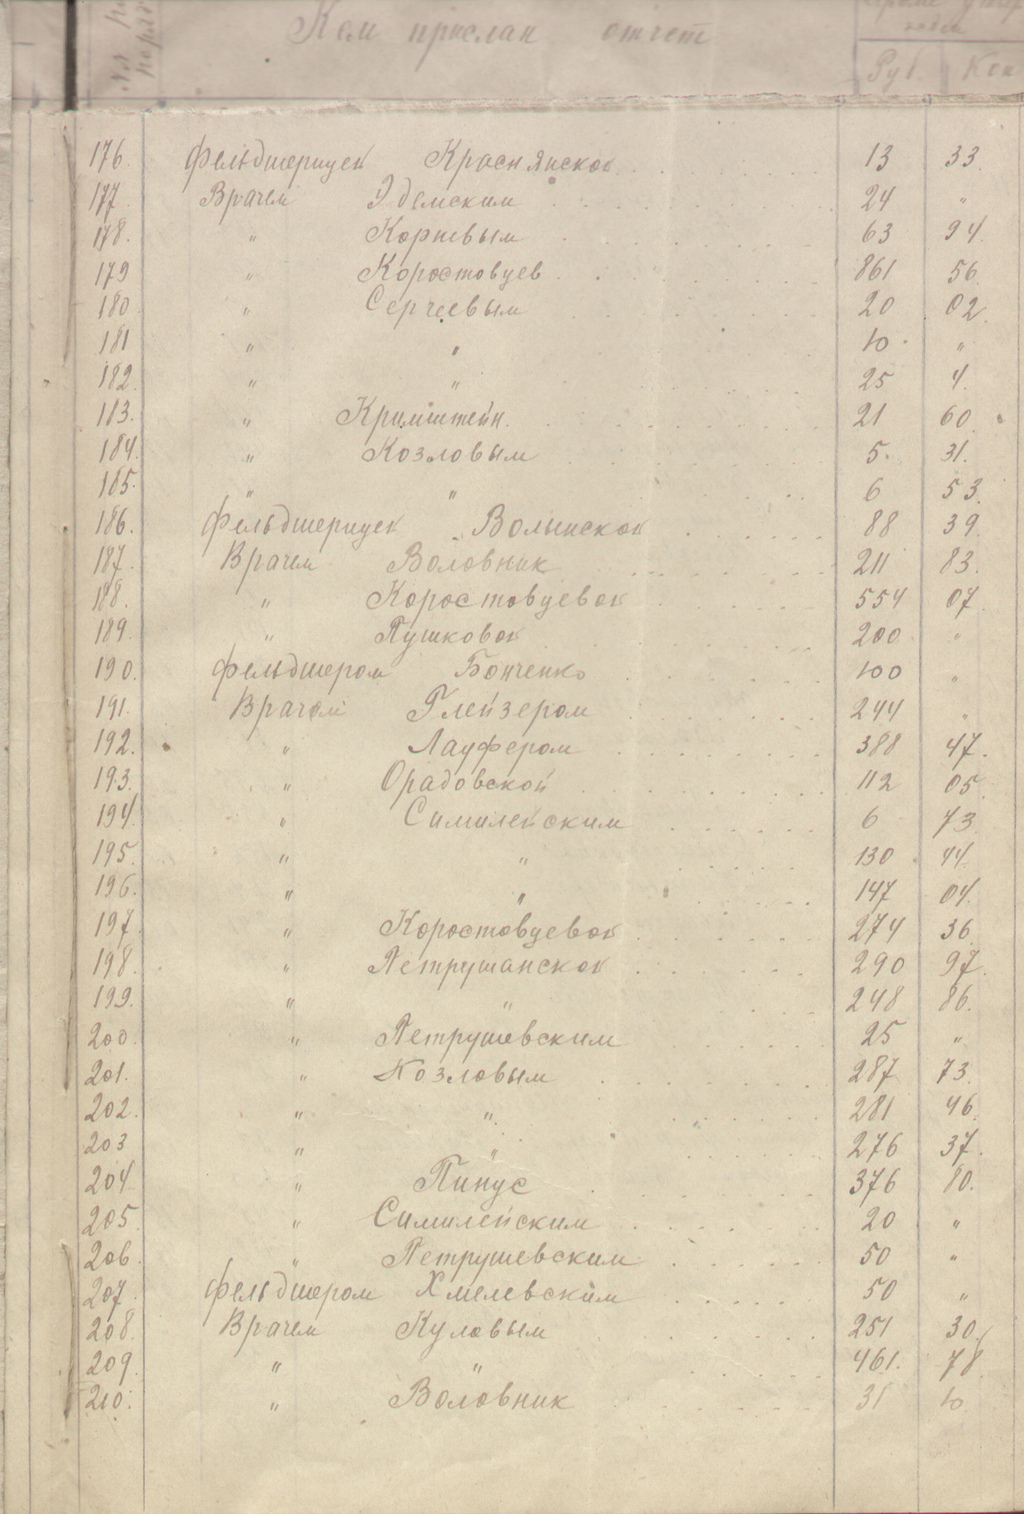 Кем прислан отчет Руб. Коп
176. Фельдшерицей Краснянской 13 33
177. Врачем Эдемским 24 "
178. " Корневым 63 94.
179 " Коростовцев 861 56
180 " Сергеевым 20 02.
181 " " 10 "
182. " " 25 4.
183. " Кримштейн. 21 60
184. " Козловым 5. 31.
185. " " 6 53.
186. Фельдшерицей Волынской 88 39
187. Врачем Воловник 211 83.
188. " Коростовцевой 554 07
189. " Пушковой 200 "
190. Фельдшером Бонченко 100 "
191. Врачем Глейзером 244 "
192. " Лауфером 388 47.
193. " Орадовской 112 05
194. " Симилейским 6 73
195. " " 130 44.
196. " " 147 04.
197. " Коростовцевой 274 36
198. " Петрушанской 290 97.
199. " " 248 86.
200. " Петрушевским 25 "
201. " Козловым 287 73.
202. " " 281 46
203 " " 276 37.
204. " Пинус 376 80.
205. " Симилейским 20 "
206. " Петрушевским 50 "
207. Фельдшером Хмелевским 50 "
208. Врачем Куловым 251 30.
209. " " 461. 78
210. " Воловник 31 10